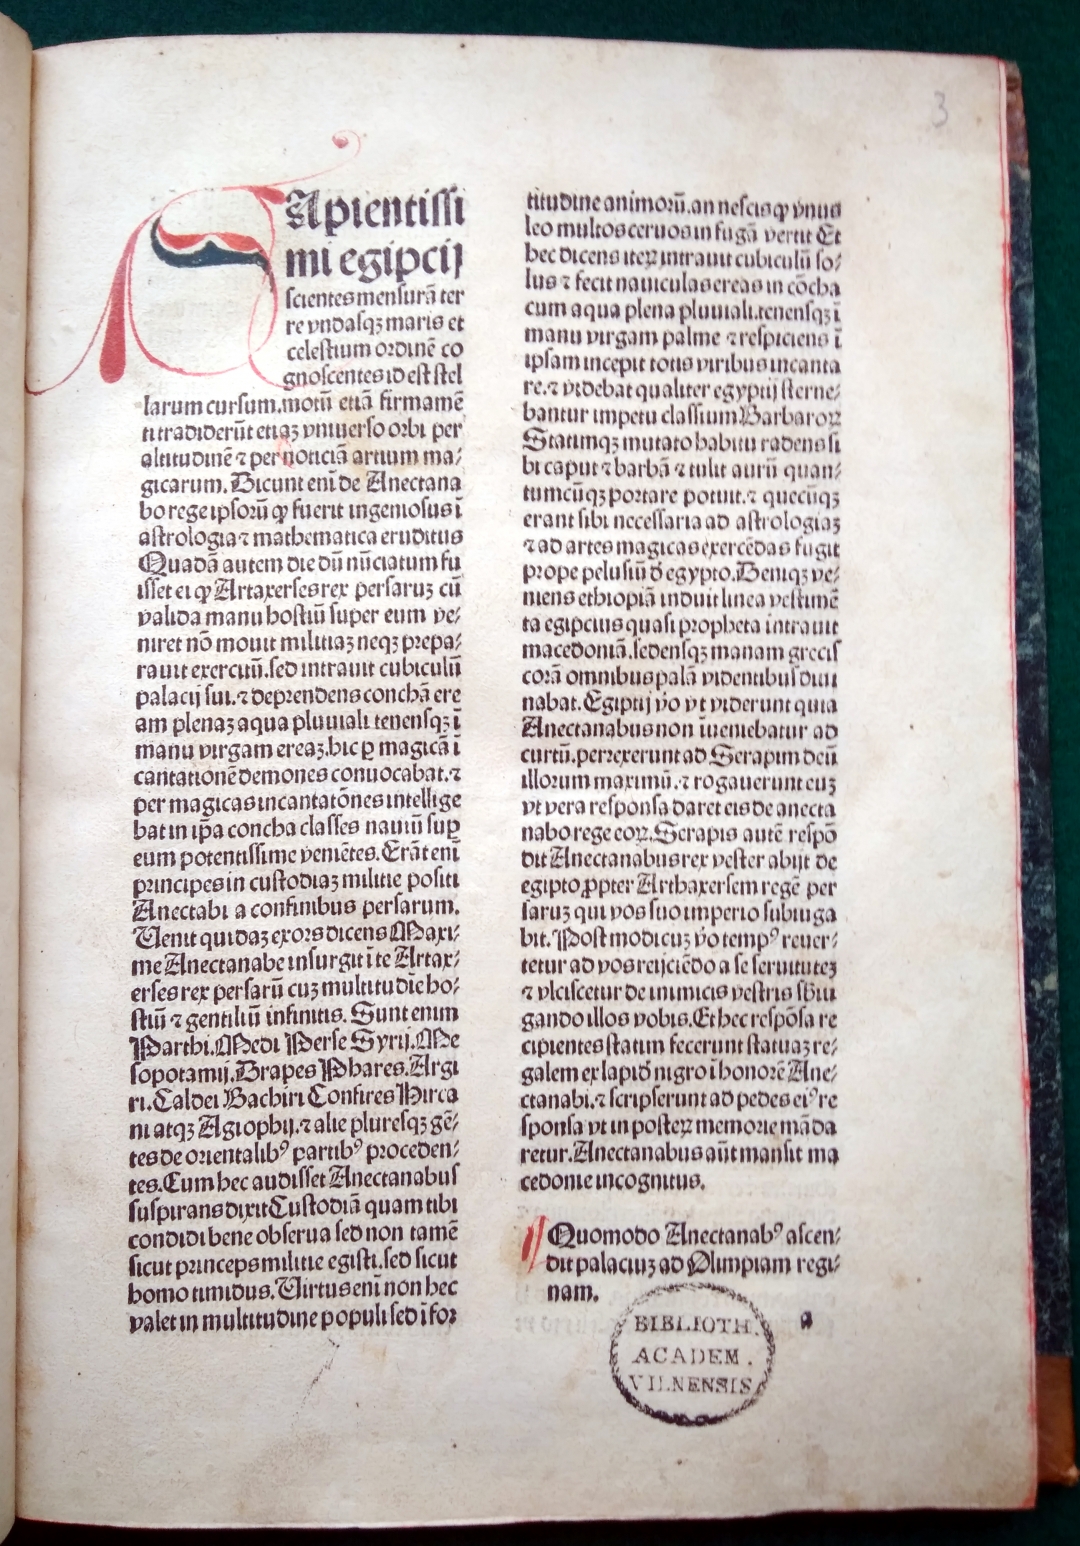 3
SApientissi
mi egipcij
scientes mensurã ter
re vndasqꝫ maris et
celestium ordinẽ co
gnoscentes id est stel
larum cursum. motũ etiã firmamẽ
ti tradiderũt etiaꝫ vniuerso orbi per
altitudinẽ ⁊ per noticiã artium ma⸗
gicarum. Dicunt enĩ de Anectana
bo rege ipsorũ ꝙ fuerit ingeniosus ĩ
astrologia ⁊ mathematica eruditus
Quadã autem die dũ nũciatum fu
isset ei ꝙ Artaxerses rex persaruꝫ cũ
valida manu hostiũ super eum ve⸗
niret nõ mouit militiaꝫ neqꝫ prepa⸗
rauit exercitũ. sed intrauit cubiculũ
palacij sui. ⁊ deprendens conchã ere
am plenaꝫ aqua pluuiali tenensqꝫ ĩ
manu virgam ereaꝫ. hic ꝑ magicã ĩ
cantationẽ demones conuocabat. ⁊
per magicas incantatõnes intellige
bat in ip̃a concha classes nauiũ suꝑ
eum potentissime veniẽtes. Erãt enĩ
principes in custodiaꝫ militie positi
Anectabi a confinibus persarum.
Uenit quidaꝫ ex ors dicens Maxi⸗
me Anectanabe insurgit ĩ te Artax⸗
erses rex persarũ cuꝫ multitudĩe ho⸗
stiũ ⁊ gentiliũ infinitis. Sunt enim
Parthi. Medi Perse Syrij. Me
sopotamij. Drapes Phares. Argi
ri. Caldei Bachiri Confires Hirca
ni atqꝫ Agiophij. ⁊ alie pluresqꝫ gẽ⸗
tes de orientalibꝰ partibꝰ proceden⸗
tes. Cum hec audisset Anectanabus
suspirans dixit Custodiã quam tibi
condidi bene obserua sed non tamẽ
sicut princeps militie egisti. sed sicut
homo timidus. Uirtus enĩ non hec
valet in multitudine populi sed ĩ for
titudine animorũ. an nescis ꝙ vnus
leo multos ceruos in fugã vertit Et
hec dicens iteꝝ intrauit cubiculũ so⸗
lus ⁊ fecit nauiculas ereas in cõcha
cum aqua plena pluuiali. tenensqꝫ ĩ
manu virgam palme ⁊ respiciens ĩ
ipsam incepit totis viribus incanta
re. ⁊ videbat qualiter egyptij sterne⸗
bantur impetu classium Barbaroꝝ
Statimqꝫ mutato habitu radens si
bi caput ⁊ barbã ⁊ tulit aurũ quan⸗
tumcũqꝫ portare potuit. ⁊ quecũqꝫ
erant sibi necessaria ad astrologiaꝫ
⁊ ad artes magicas exercẽdas fugit
prope pelusiũ đ egypto. Deniqꝫ ve⸗
niens ethiopiã induit linea vestimẽ
ta egipcius quasi propheta intrauit
macedoniã. sedensqꝫ manam grecis
corã omnibus palã videntibus diui
nabat. Egiptij ṽo vt viderunt quia
Anectanabus non ĩueniebatur ad
curtũ. perrexerunt ad Serapim deũ
illorum maximũ. ⁊ rogauerunt euꝫ
vt vera responsa daret eis de anecta
nabo rege eoꝝ. Serapis autẽ respõ
dit Anectanabus rex vester abijt de
egipto ꝓpter Arthaxersem regẽ per
saruꝫ qui vos suo imperio subiuga
bit. Post modicuꝫ ṽo tempꝰ reuer⸗
tetur ad vos reijciẽdo a se seruituteꝫ
⁊ vlciscetur de inimicis vestris sb̃iu
gando illos vobis. Et hec respõsa re
cipientes statim fecerunt statuaꝫ re⸗
galem ex lapiđ nigro ĩ honorẽ Ane⸗
ctanabi. ⁊ scripserunt ad pedes eiꝰ re
sponsa vt in posteꝝ memorie mãda
retur. Anectanabus aũt mansit ma
cedonie incognitus.
Quomodo Anectanabꝰ ascen⸗
dit palaciuꝫ ad Olimpiam regi⸗
nam.
a
BIBLIOTH.
ACADEM.
VILNENSIS